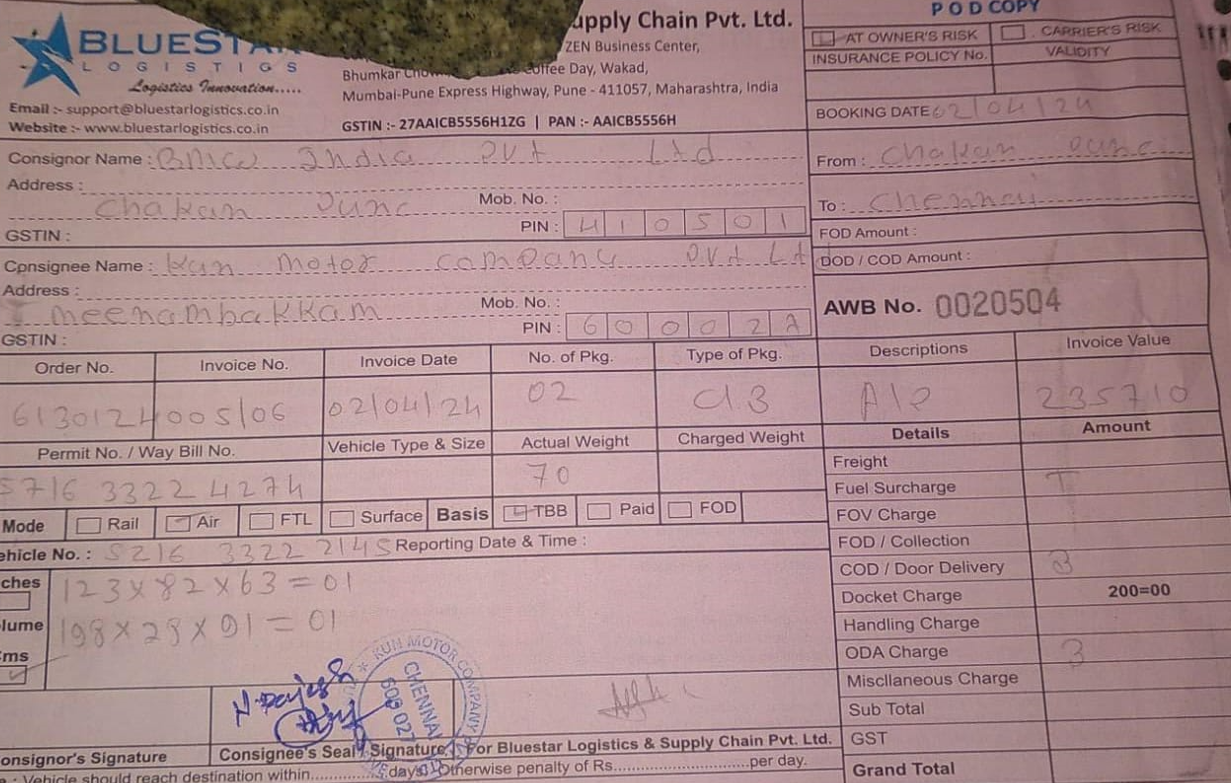 BLUESTAR
LOGISTICS
Logistics Innovation.....
Email :- support@bluestarlogistics.co.in
Website :- www.bluestarlogistics.co.in
Supply Chain Pvt. Ltd.
ZEN Business Center,
Bhumkar Coffee Day, Wakad,
Mumbai-Pune Express Highway, Pune - 411057, Maharashtra, India
GSTIN :- 27AAICB5556H1ZG | PAN :- AAICB5556H
POD COPY
AT OWNER'S RISK CARRIER'S RISK
INSURANCE POLICY No. VALIDITY
BOOKING DATE 02/04/24
Consignor Name : BMW India Pvt Ltd
Address :
Chakan Pune Mob. No. :
GSTIN : PIN : 410501
From : Chakan Pune
To : Chennai
FOD Amount :
DOD / COD Amount :
Consignee Name : Kun motor company Pvt Lt
Address :
meenambakkam Mob. No. :
GSTIN : PIN : 600027
AWB No. 0020504
Order No. Invoice No. Invoice Date No. of Pkg. Type of Pkg. Descriptions Invoice Value
6130124005/06 02/04/24 02 A/P 235710
Permit No. / Way Bill No. Vehicle Type & Size Actual Weight Charged Weight Details Amount
5716 3322 4274 70
Freight
Fuel Surcharge T
FOV Charge
FOD / Collection
COD / Door Delivery B
Docket Charge 200=00
Handling Charge
ODA Charge B
Miscllaneous Charge
Sub Total
GST
Grand Total
Mode Rail Air FTL Surface Basis TBB Paid FOD
ehicle No. : 5216 3322 2145 Reporting Date & Time :
ches 123x82x63=01
lume 198x28x91=01
ms
KUN MOTOR COMPANY
CHENNAI
600 027
onsignor's Signature Consignee's Seal Signature For Bluestar Logistics & Supply Chain Pvt. Ltd.
: Vehicle should reach destination within..............days Otherwise penalty of Rs.........................per day.